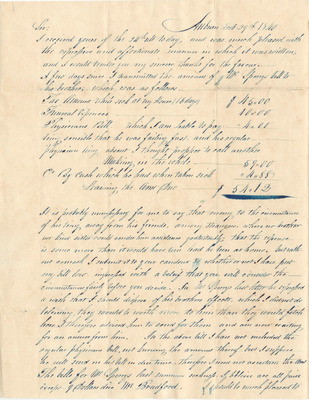 Auburn Oct 29th 1840
Sir,
I received yours of the 24th ult to day, and was much pleased with
the expressive and affectionate manner in which it was written,
and I would render you my sincere thanks for the favour.
A few days since I transmitted the amount of Mr Spring bill to
his brother, which was as follows.
For Attention while sick at my house, 16 days $ 45.00
Funeral expences 10.00
Physicians Bill which I am liable to pay 4.00
being sensible that he was failing fast and his regular
physician being absent I thought proper to call another
Making in the whole 59.00
Cr By Cash which he had when taken sick 4.88
Leaving the sum Due $ 54.12
It is probably unnecessary for me to say that owing to the circumstance
of his being away from his friends, among strangers where no brother
nor kind sister could render him assistance gratuitously, that the expence
is some more than it would have been had he been at home, but with
out comment I submit it to your candour whether or not I have put
my bill low impressed with a belief that you will consider the
circumstances before you decide. In Mr Springs last letter he expressed
a wish that I should dispose of his brothers effects, which I did not do
believing they would be worth more to him than they would fetch
here, I therefore advised him to send for them and am now waiting
for an answer from him. In the above bill I have not included the
regular physicians bill, not knowing the amount though but I suppose
he will send on his bill in due time, therefore I need not ascertain the amt
The bills for Mr Springs last summer I believe are all paid
except of dollars due Mr. Bradford. I should be much pleased to